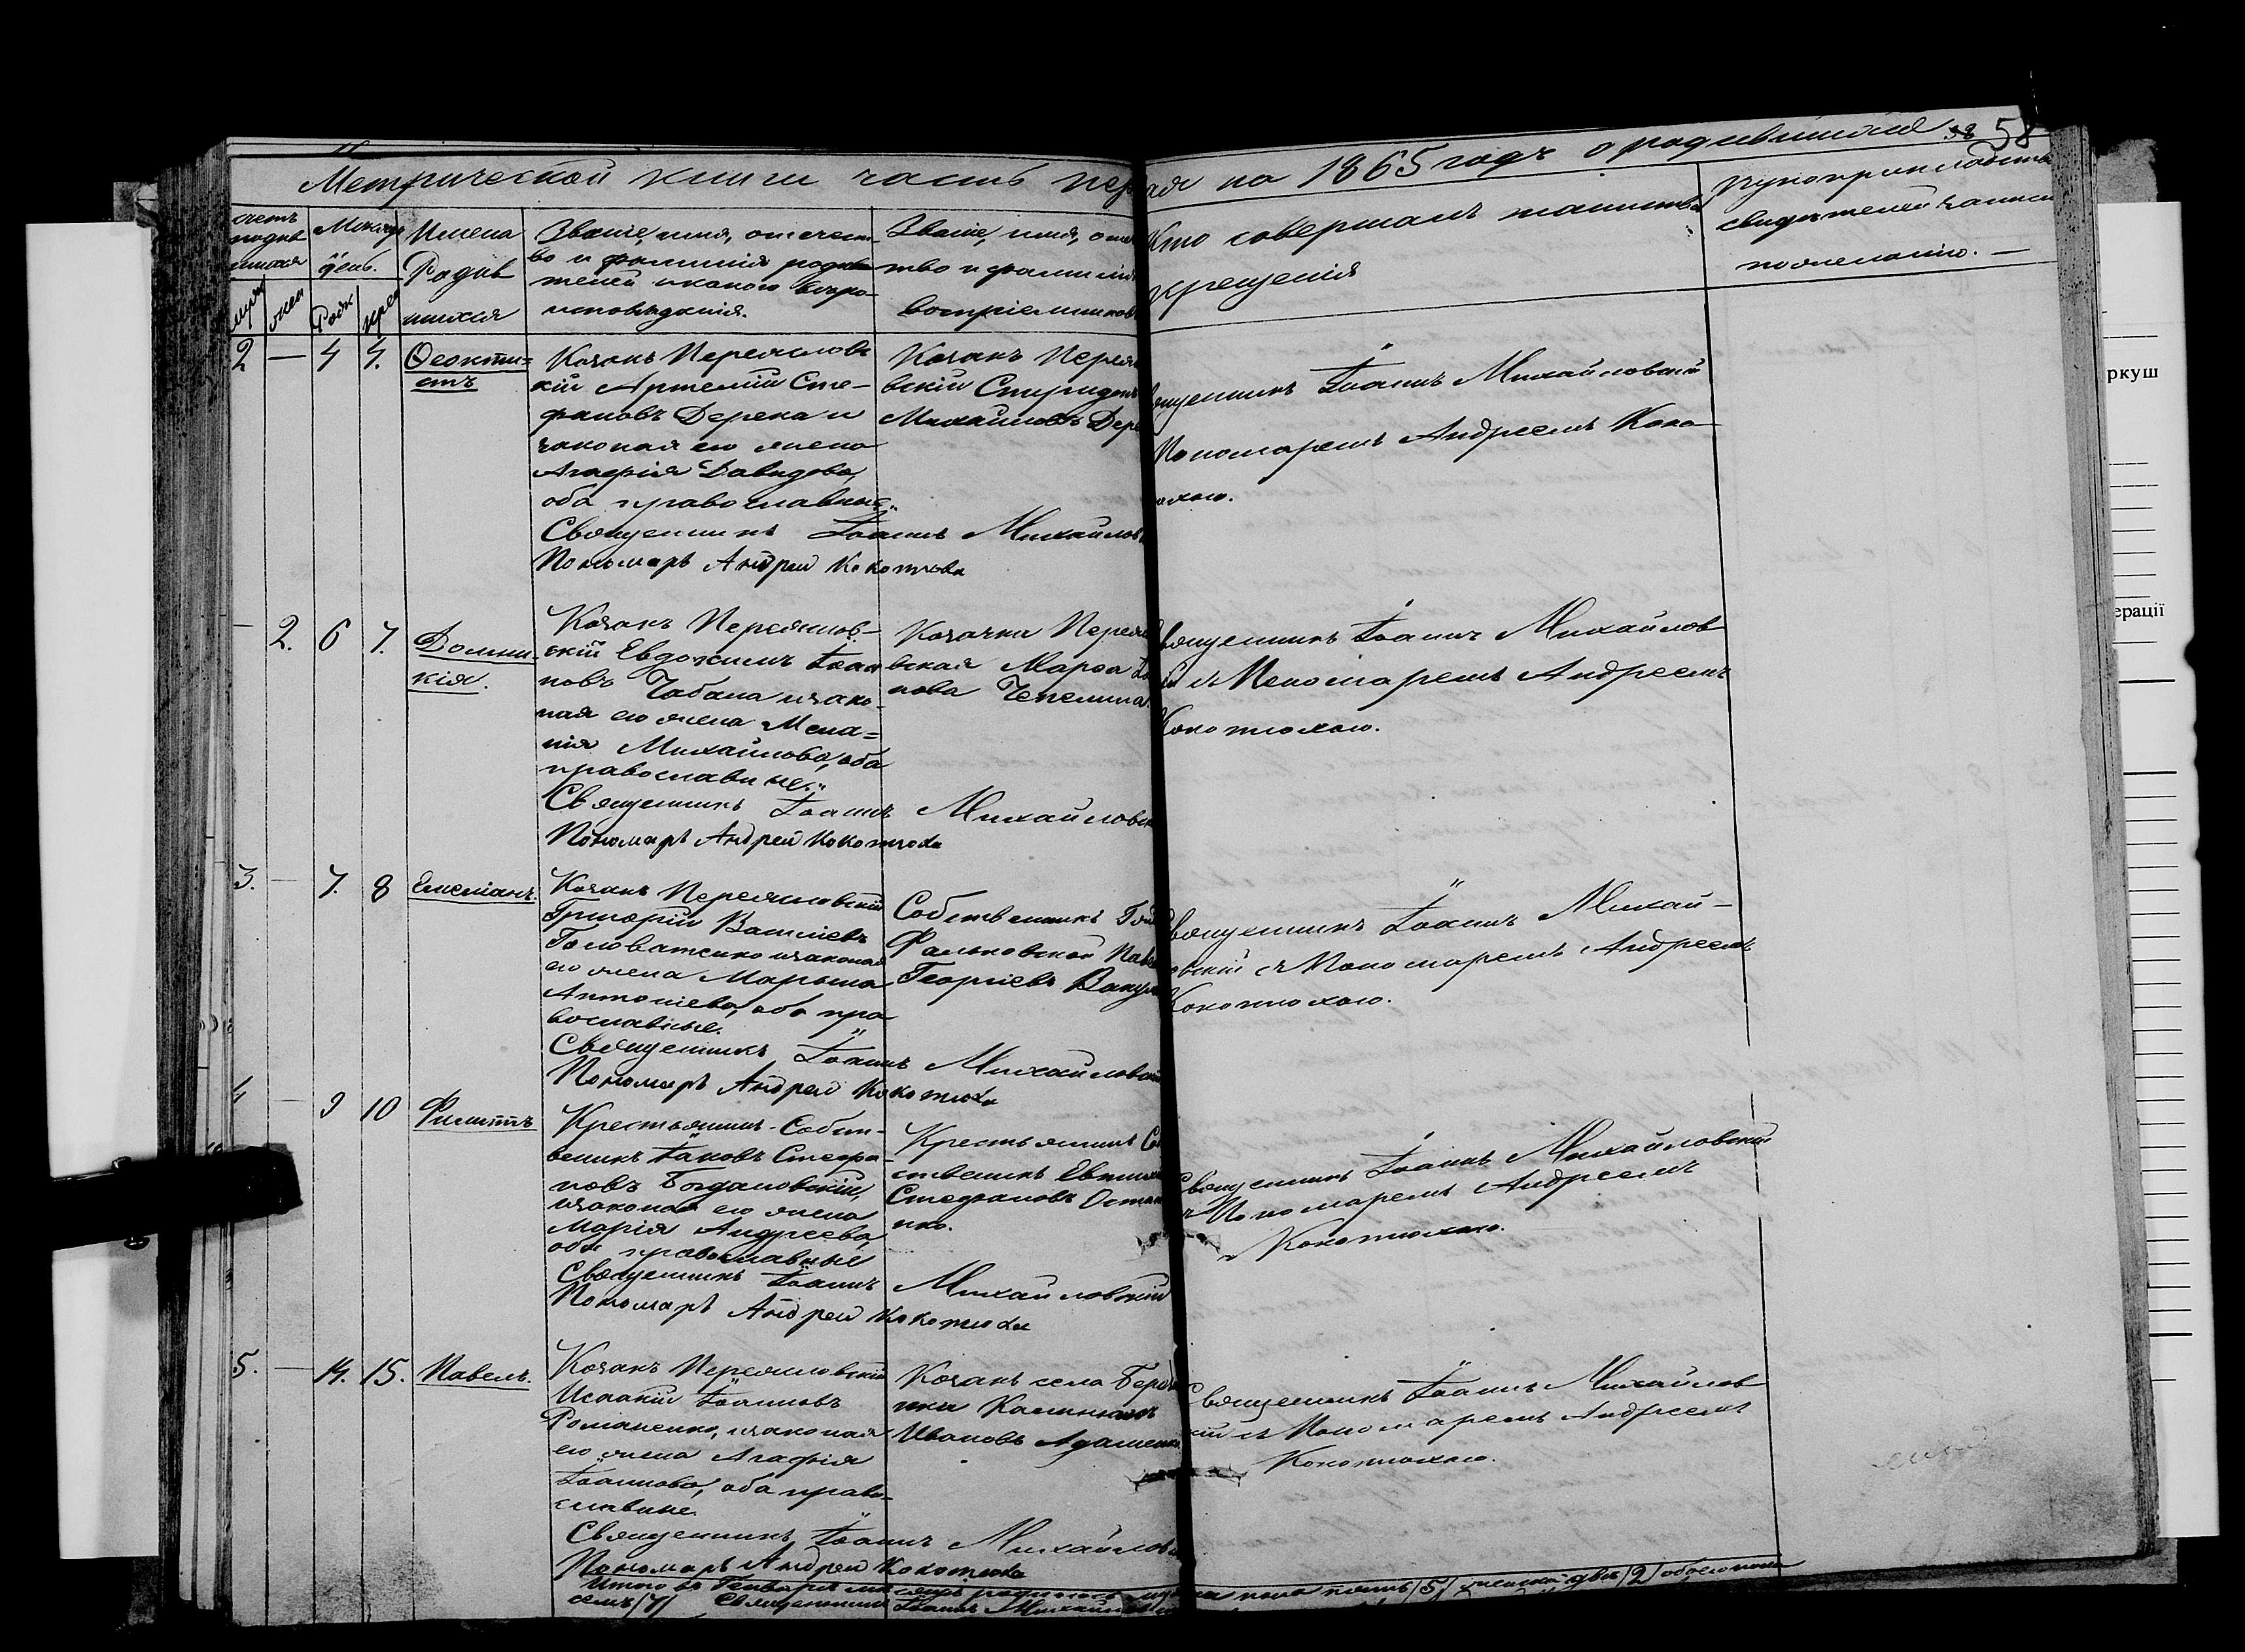 Метрической книги часть пер
ая на 1865 годъ о родившихся 58
счетъ родив шихся
Мѣсяцъ день.
Имена Родив шихся
Званіе, имя, отечест-
во и фамилія роди-
телей и какого вѣро-
исповѣданія.
Званіе, имя, отче
тво и фамилія
воспріемниковъ
Кто совершалъ таинство
крещенія
Рукоприкладство
свидѣтелей записи
по желанію. —
2 — 4 4. Ѳеокти=
стъ
Козакъ Переяслов
кій Артемій Сте-
фановъ Дерека и
законая его жена
Агафія Давидова,
оба православные.
Священникъ Іоаннъ Михайлов
Пономарь Андрей Кокотюха
Козакъ Перея
вскій Спиридонъ
Михайловъ Дере
ященникъ Іоаннъ Михайловскій
Пономаремъ Андреемъ Коко-
юхою.
— 2. 6 7. Домни-
кія.
Козакъ Переяслов-
скій Евдокимъ Іоан
новъ Чабана и зако-
ная его жена Мела=
нія Михайлова, оба
православные.
Священникъ Іоаннъ Михайловск
Пономарь Андрей Кокотюха
Козачка Перея
вская Марѳа
нова Чепелина
вященникъ Іоаннъ Михайлов
съ Пономаремъ Андреемъ
Кокотюхою.
3. — 7. 8 Емеліанъ.
Козакъ Переясловскій
Григорій Василіевъ
Головатенко и законая
его жена Марьяна
Антоніева, оба пра
вославные.
Священникъ Іоаннъ Михайловскі
Пономарь Андрей Кокотюха
Собственникъ
Фальковской Пав
Георгіевъ Вакул
вященникъ Іоаннъ Михай-
овскій съ Пономаремъ Андреемъ
Кокотюхою.
4 — 9 10 Филиппъ
Крестьянинъ-Собст-
веникъ Іаковъ Стефа-
новъ Богдановскій,
и законая его жена
Марія Андреева,
оба православные
Священникъ Іоаннъ Михайловскій
Пономарь Андрей Кокотюха
Крестьянинъ Со
ственикъ Евтих
Стефановъ Остап
нко.
Священникъ Іоаннъ Михайловскій
съ Пономаремъ Андреемъ
Кокотюхою.
5. — 14. 15. Павелъ.
Козакъ Переясловскій
Исаакій Іоанновъ
Романенко, и законая
его жена Агафія
Іоаннова, оба право-
славные.
Священникъ Іоаннъ Михайлов
Пономарь Андрей Кокотюха
Козакъ села
нки
Ивановъ Адаменко
Священникъ Іоаннъ Михайлов
кій съ Пономаремъ Андреемъ
Кокотюхою.
Итого въ Генварѣ мѣсяцѣ родилось муж на пола пять /5/ женска двѣ /2/ обоего пола
семь /7/ Священникъ Іоаннъ
ркуш
ерації